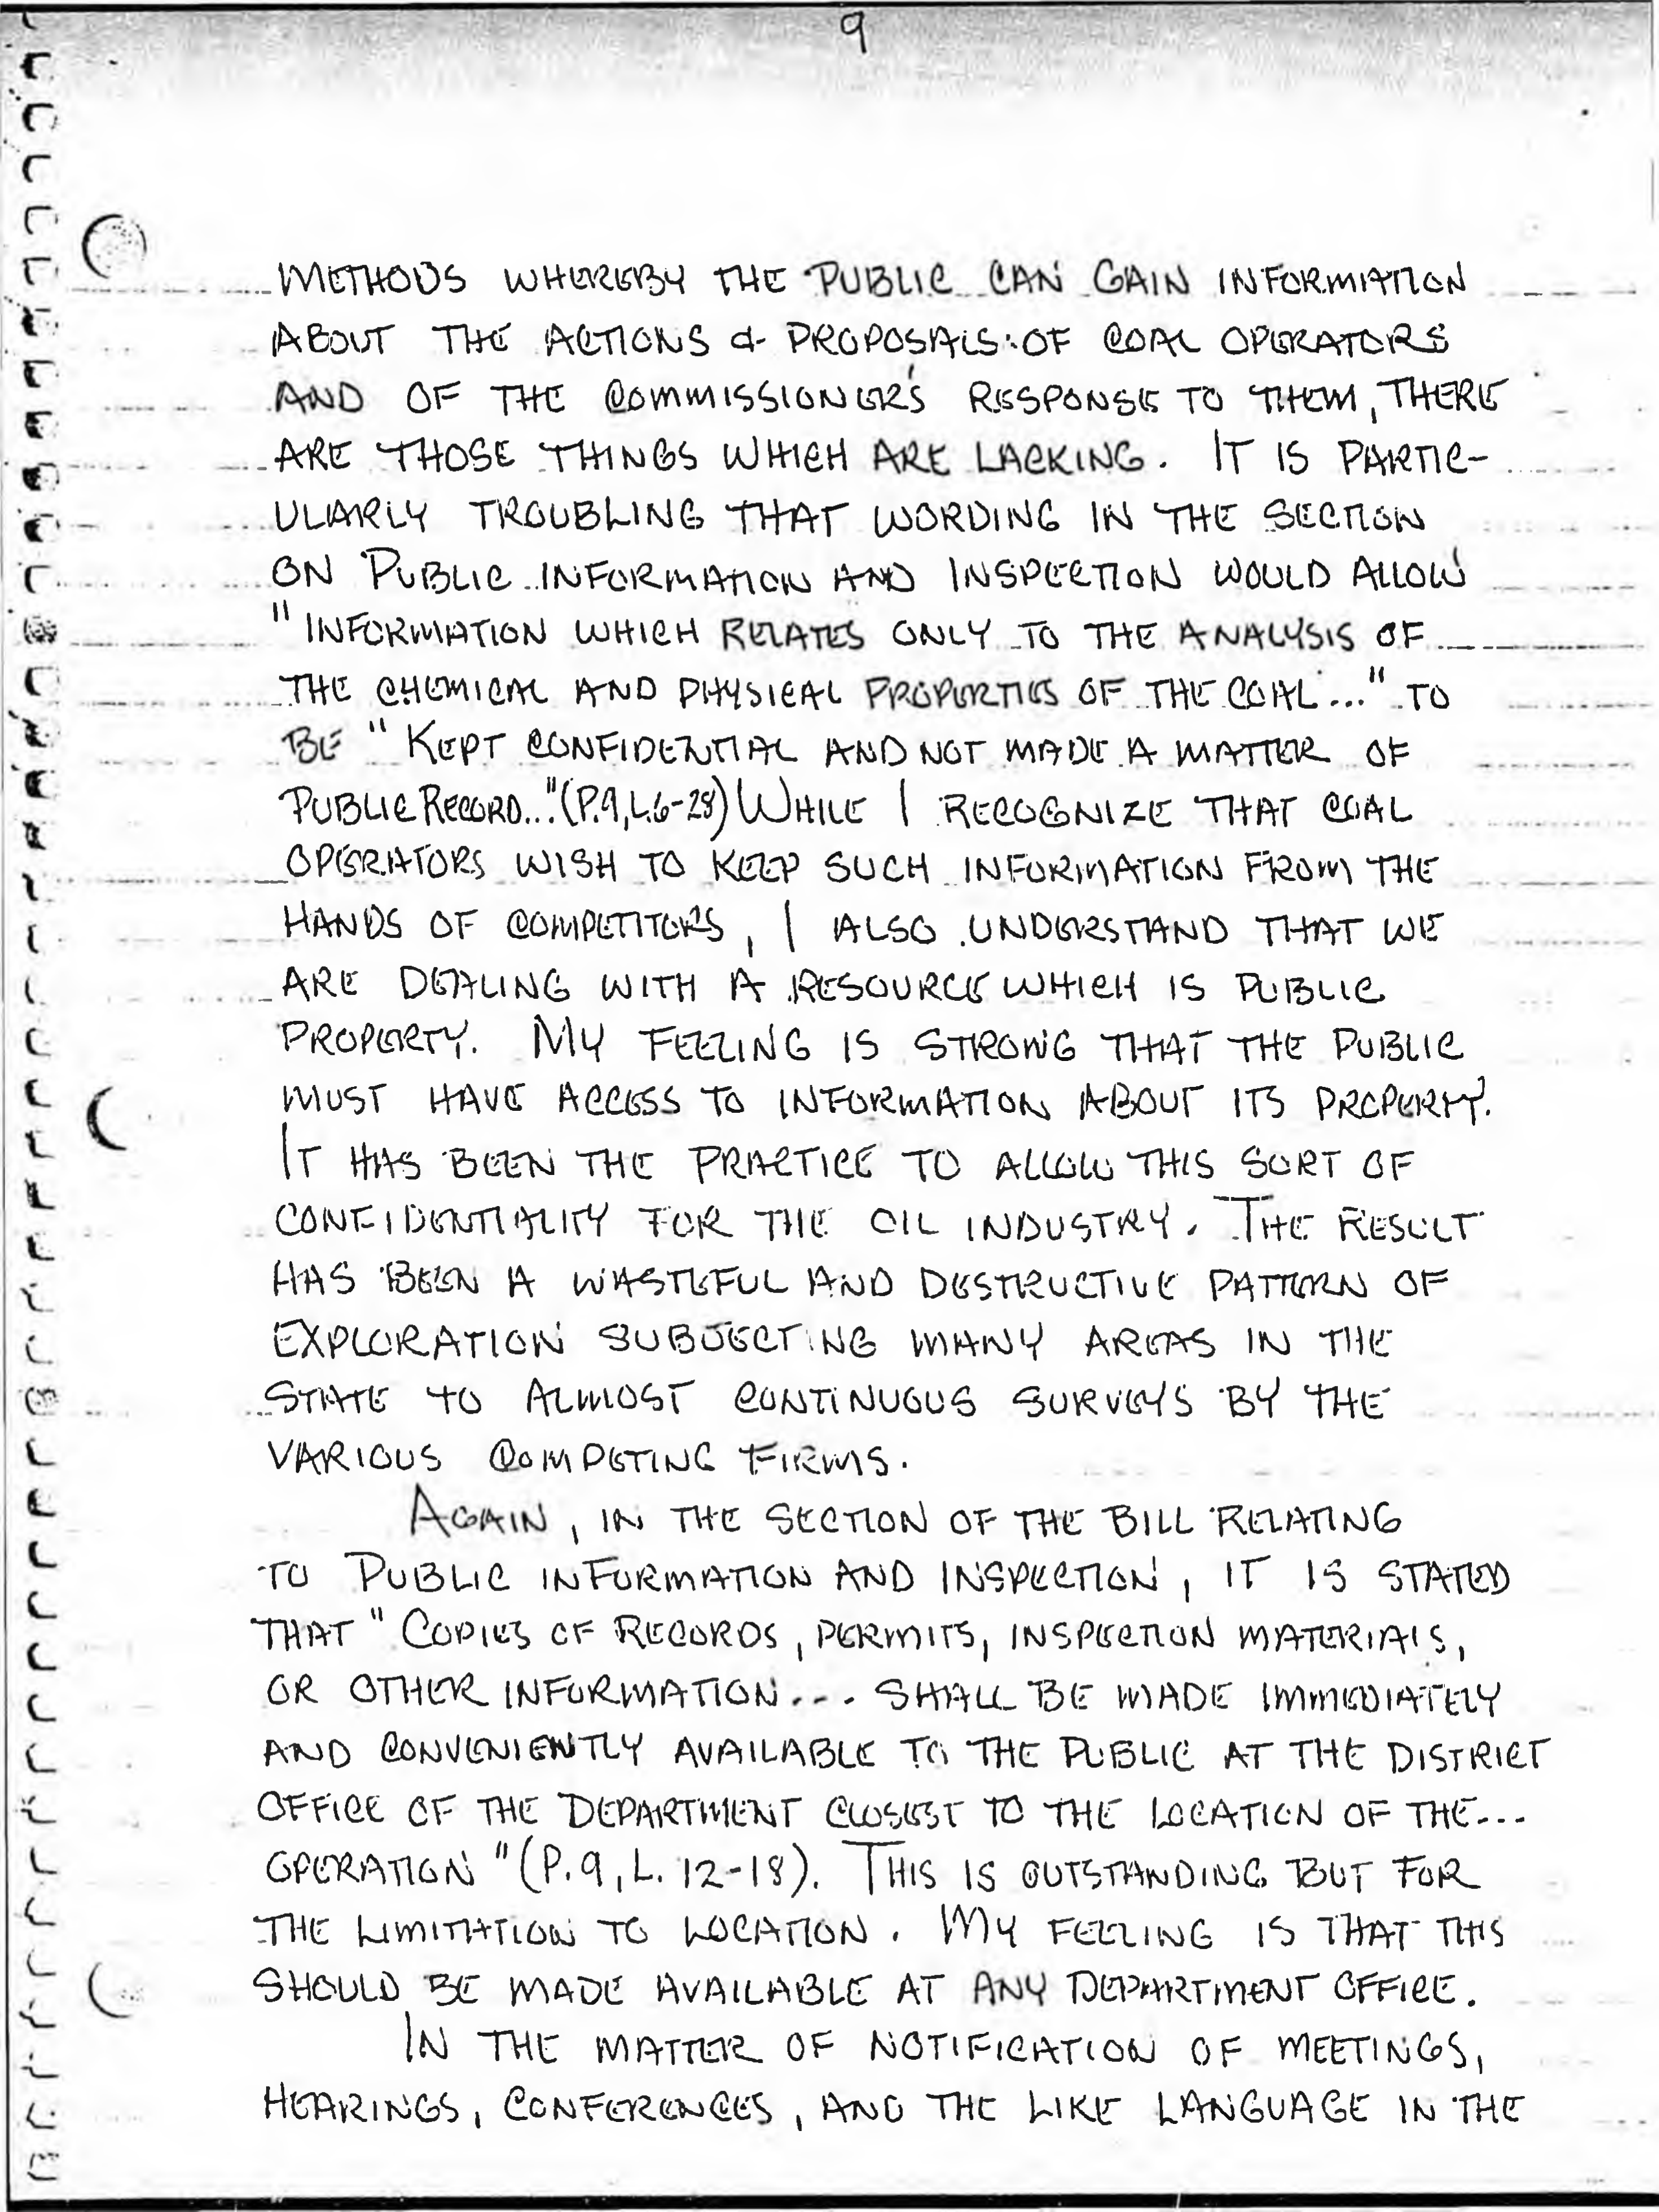 9
METHODS WHEREBY THE PUBLIC CAN GAIN INFORMATION
ABOUT THE ACTIONS & PROPOSALS OF COAL OPERATORS
AND OF THE COMMISSIONER'S RESPONSE TO THEM, THERE
ARE THOSE THINGS WHICH ARE LACKING. IT IS PARTIC-
ULARLY TROUBLING THAT WORDING IN THE SECTION
ON PUBLIC INFORMATION AND INSPECTION WOULD ALLOW
"INFORMATION WHICH RELATES ONLY TO THE ANALYSIS OF
THE CHEMICAL AND PHYSICAL PROPERTIES OF THE COAL..." TO
BE "KEPT CONFIDENTIAL AND NOT MADE A MATTER OF
PUBLIC RECORD..." (P.9, L.6-28) WHILE I RECOGNIZE THAT COAL
OPERATORS WISH TO KEEP SUCH INFORMATION FROM THE
HANDS OF COMPETITORS, I ALSO UNDERSTAND THAT WE
ARE DEALING WITH A RESOURCE WHICH IS PUBLIC
PROPERTY. MY FEELING IS STRONG THAT THE PUBLIC
MUST HAVE ACCESS TO INFORMATION ABOUT ITS PROPERTY.
IT HAS BEEN THE PRACTICE TO ALLOW THIS SORT OF
CONFIDENTIALITY FOR THE OIL INDUSTRY. THE RESULT
HAS BEEN A WASTEFUL AND DESTRUCTIVE PATTERN OF
EXPLORATION SUBJECTING MANY AREAS IN THE
STATE TO ALMOST CONTINUOUS SURVEYS BY THE
VARIOUS COMPETING FIRMS.
AGAIN, IN THE SECTION OF THE BILL RELATING
TO PUBLIC INFORMATION AND INSPECTION, IT IS STATED
THAT "COPIES OF RECORDS, PERMITS, INSPECTION MATERIALS,
OR OTHER INFORMATION... SHALL BE MADE IMMEDIATELY
AND CONVENIENTLY AVAILABLE TO THE PUBLIC AT THE DISTRICT
OFFICE OF THE DEPARTMENT CLOSEST TO THE LOCATION OF THE...
OPERATION" (P.9, L. 12-18). THIS IS OUTSTANDING BUT FOR
THE LIMITATION TO LOCATION. MY FEELING IS THAT THIS
SHOULD BE MADE AVAILABLE AT ANY DEPARTMENT OFFICE.
IN THE MATTER OF NOTIFICATION OF MEETINGS,
HEARINGS, CONFERENCES, AND THE LIKE LANGUAGE IN THE